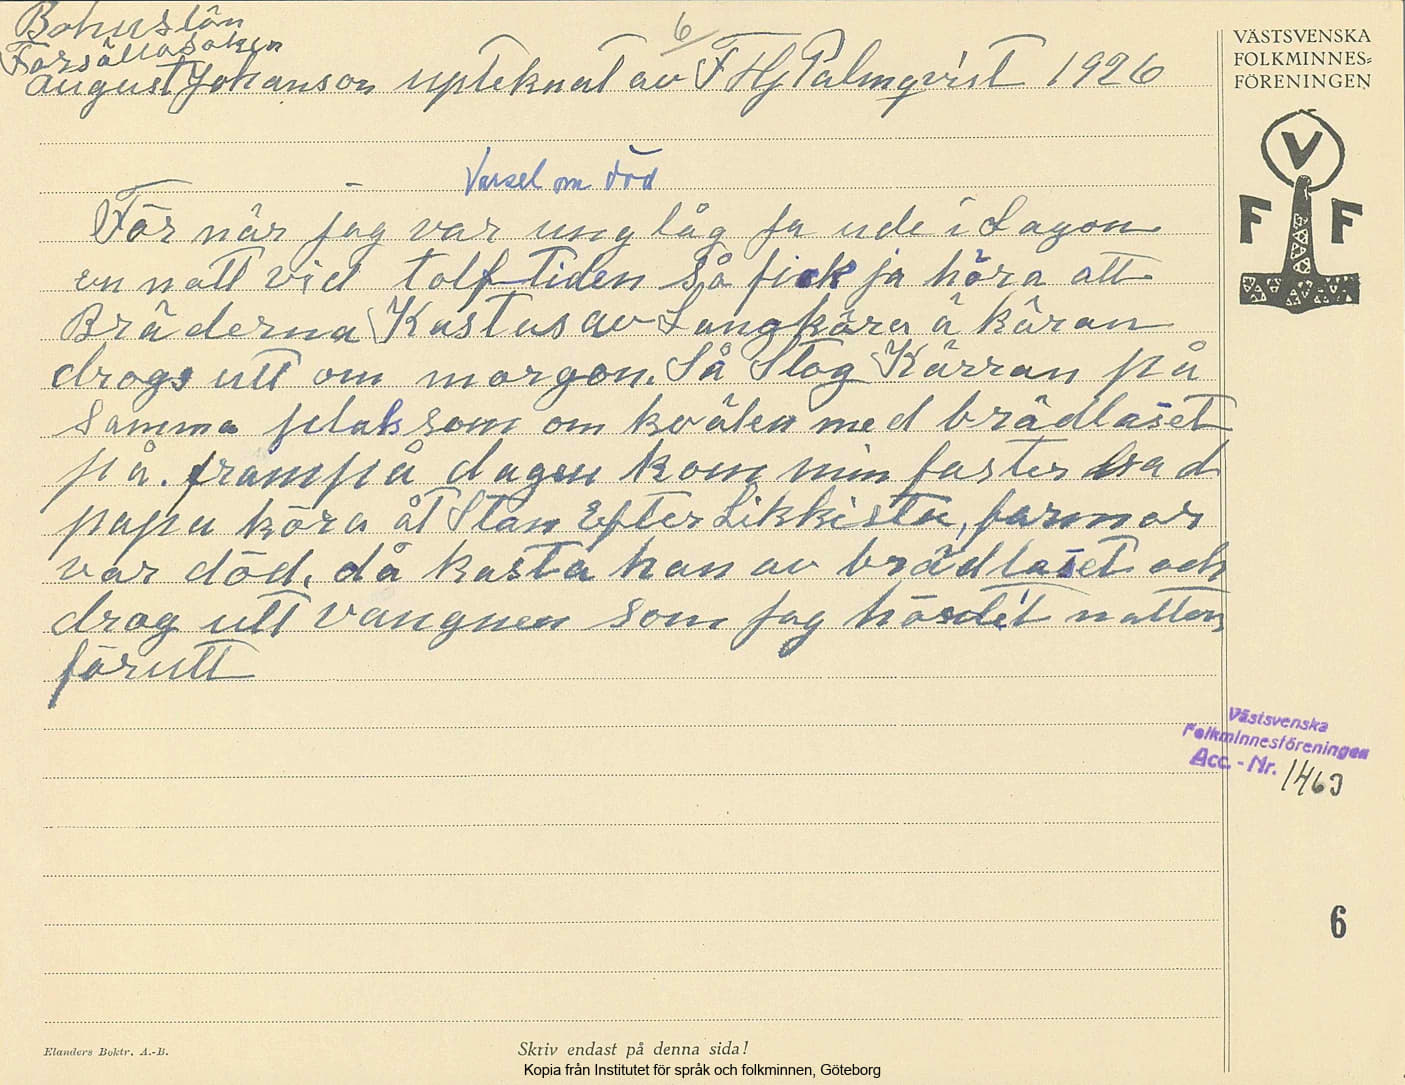 Bohuslän
Forsälla soken
August Johanson upteknat av F Hj Palmqvist 1926
6
Varsel om död
För när jag var ung låg ja ude i Lagon
en natt vid tolf tiden så fick ja höra att
Bräderna Kastas av Langkära å käran
drogs utt om morgon. Så Stog Kärran på
samma plak som om kvälen med brädlaset
på. frampå dagen kom min faster bad
papa köra åt Stan Efter Likkista, farmor
var död. då kasta han av brädlaset och
drog utt vangnen som jag hörde't natten
förutt
VÄSTSVENSKA
FOLKMINNES=
FÖRENINGEN
V
F F
Västsvenska
Folkminnesföreningen
Acc. - Nr. 1463
6
Elanders Boktr. A.-B.
Skriv endast på denna sida!
Kopia från Institutet för språk och folkminnen, Göteborg